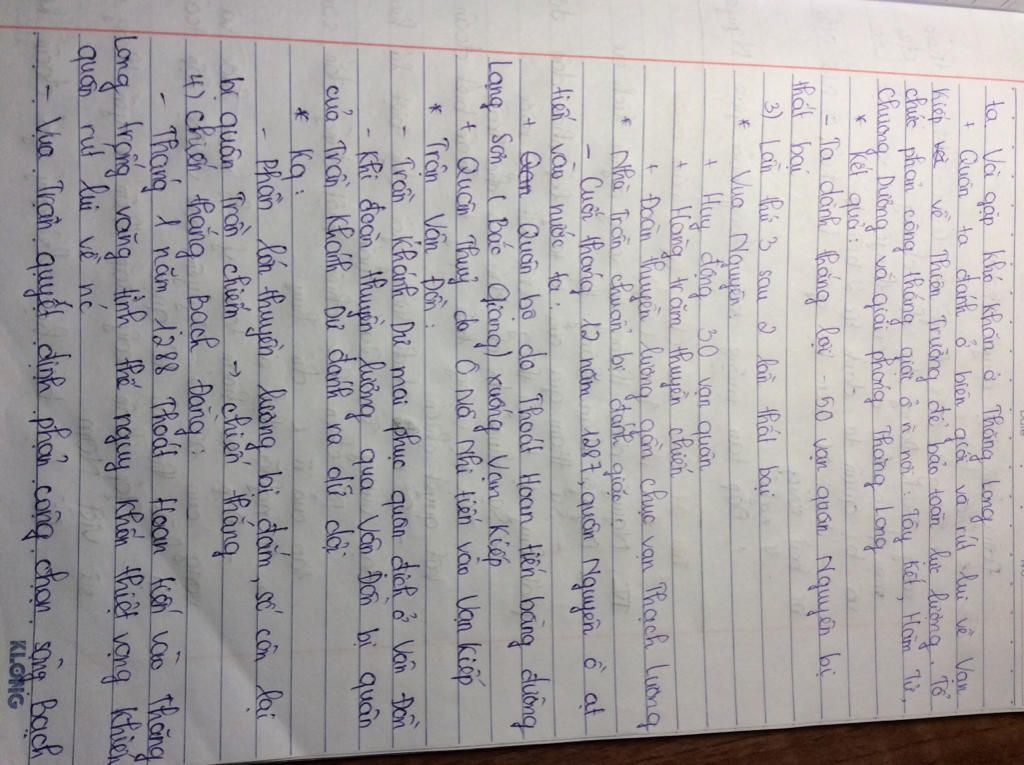 ta Và gặp khó khăn ở Thăng Long
+ Quân ta đánh ở biên giới và rút lui về Vạn
Kiếp về Thiên Trường để bảo toàn lực lượng. Tổ
chức phản công thắng giặc ở n nơi: Tây kết, Hàm Tử,
Chương Dương và giải phóng Thăng Long
* Kết quả:
- Ta dành thắng lợi - 50 vạn quân Nguyên bị
thất bại
3) Lần thứ 3 sau 2 lần thất bại
* Vua Nguyên:
+ Huy động 30 vạn quân
+ Hàng trăm thuyền chiến
+ Đoàn thuyền lương gồm chục vạn Thạch Lương
* Nhà Trần chuẩn bị đánh giặc
- Cuối tháng 12 năm 1287, quân Nguyên ồ ạt
tiến vào nước ta:
+ Quân bộ do Thoát Hoan tiến bằng đường
Lạng Sơn (Bắc Giang) xuống Vạn Kiếp
+ Quân Thuỷ do Ô Mã Nhi tiến vào Vạn Kiếp
* Trận Vân Đồn:
- Trần Khánh Dư mai phục quân địch ở Vân Đồn
- Khi đoàn thuyền lương qua Vân Đồn bị quân
của Trần Khánh Dư đánh ra dữ dội
* Kq:
- Phần lớn thuyền lương bị đắm, số còn lại
bị quân Trần chiến → chiến thắng
4) Chiến thắng Bạch Đằng:
- Tháng 1 năm 1288 Thoát Hoan tiến vào Thăng
Long trống vắng tình thế nguy khốn tuyệt vọng khiến
quân rút lui về nc
- Vua Trần quyết định phản công chọn sông Bạch
KLONG